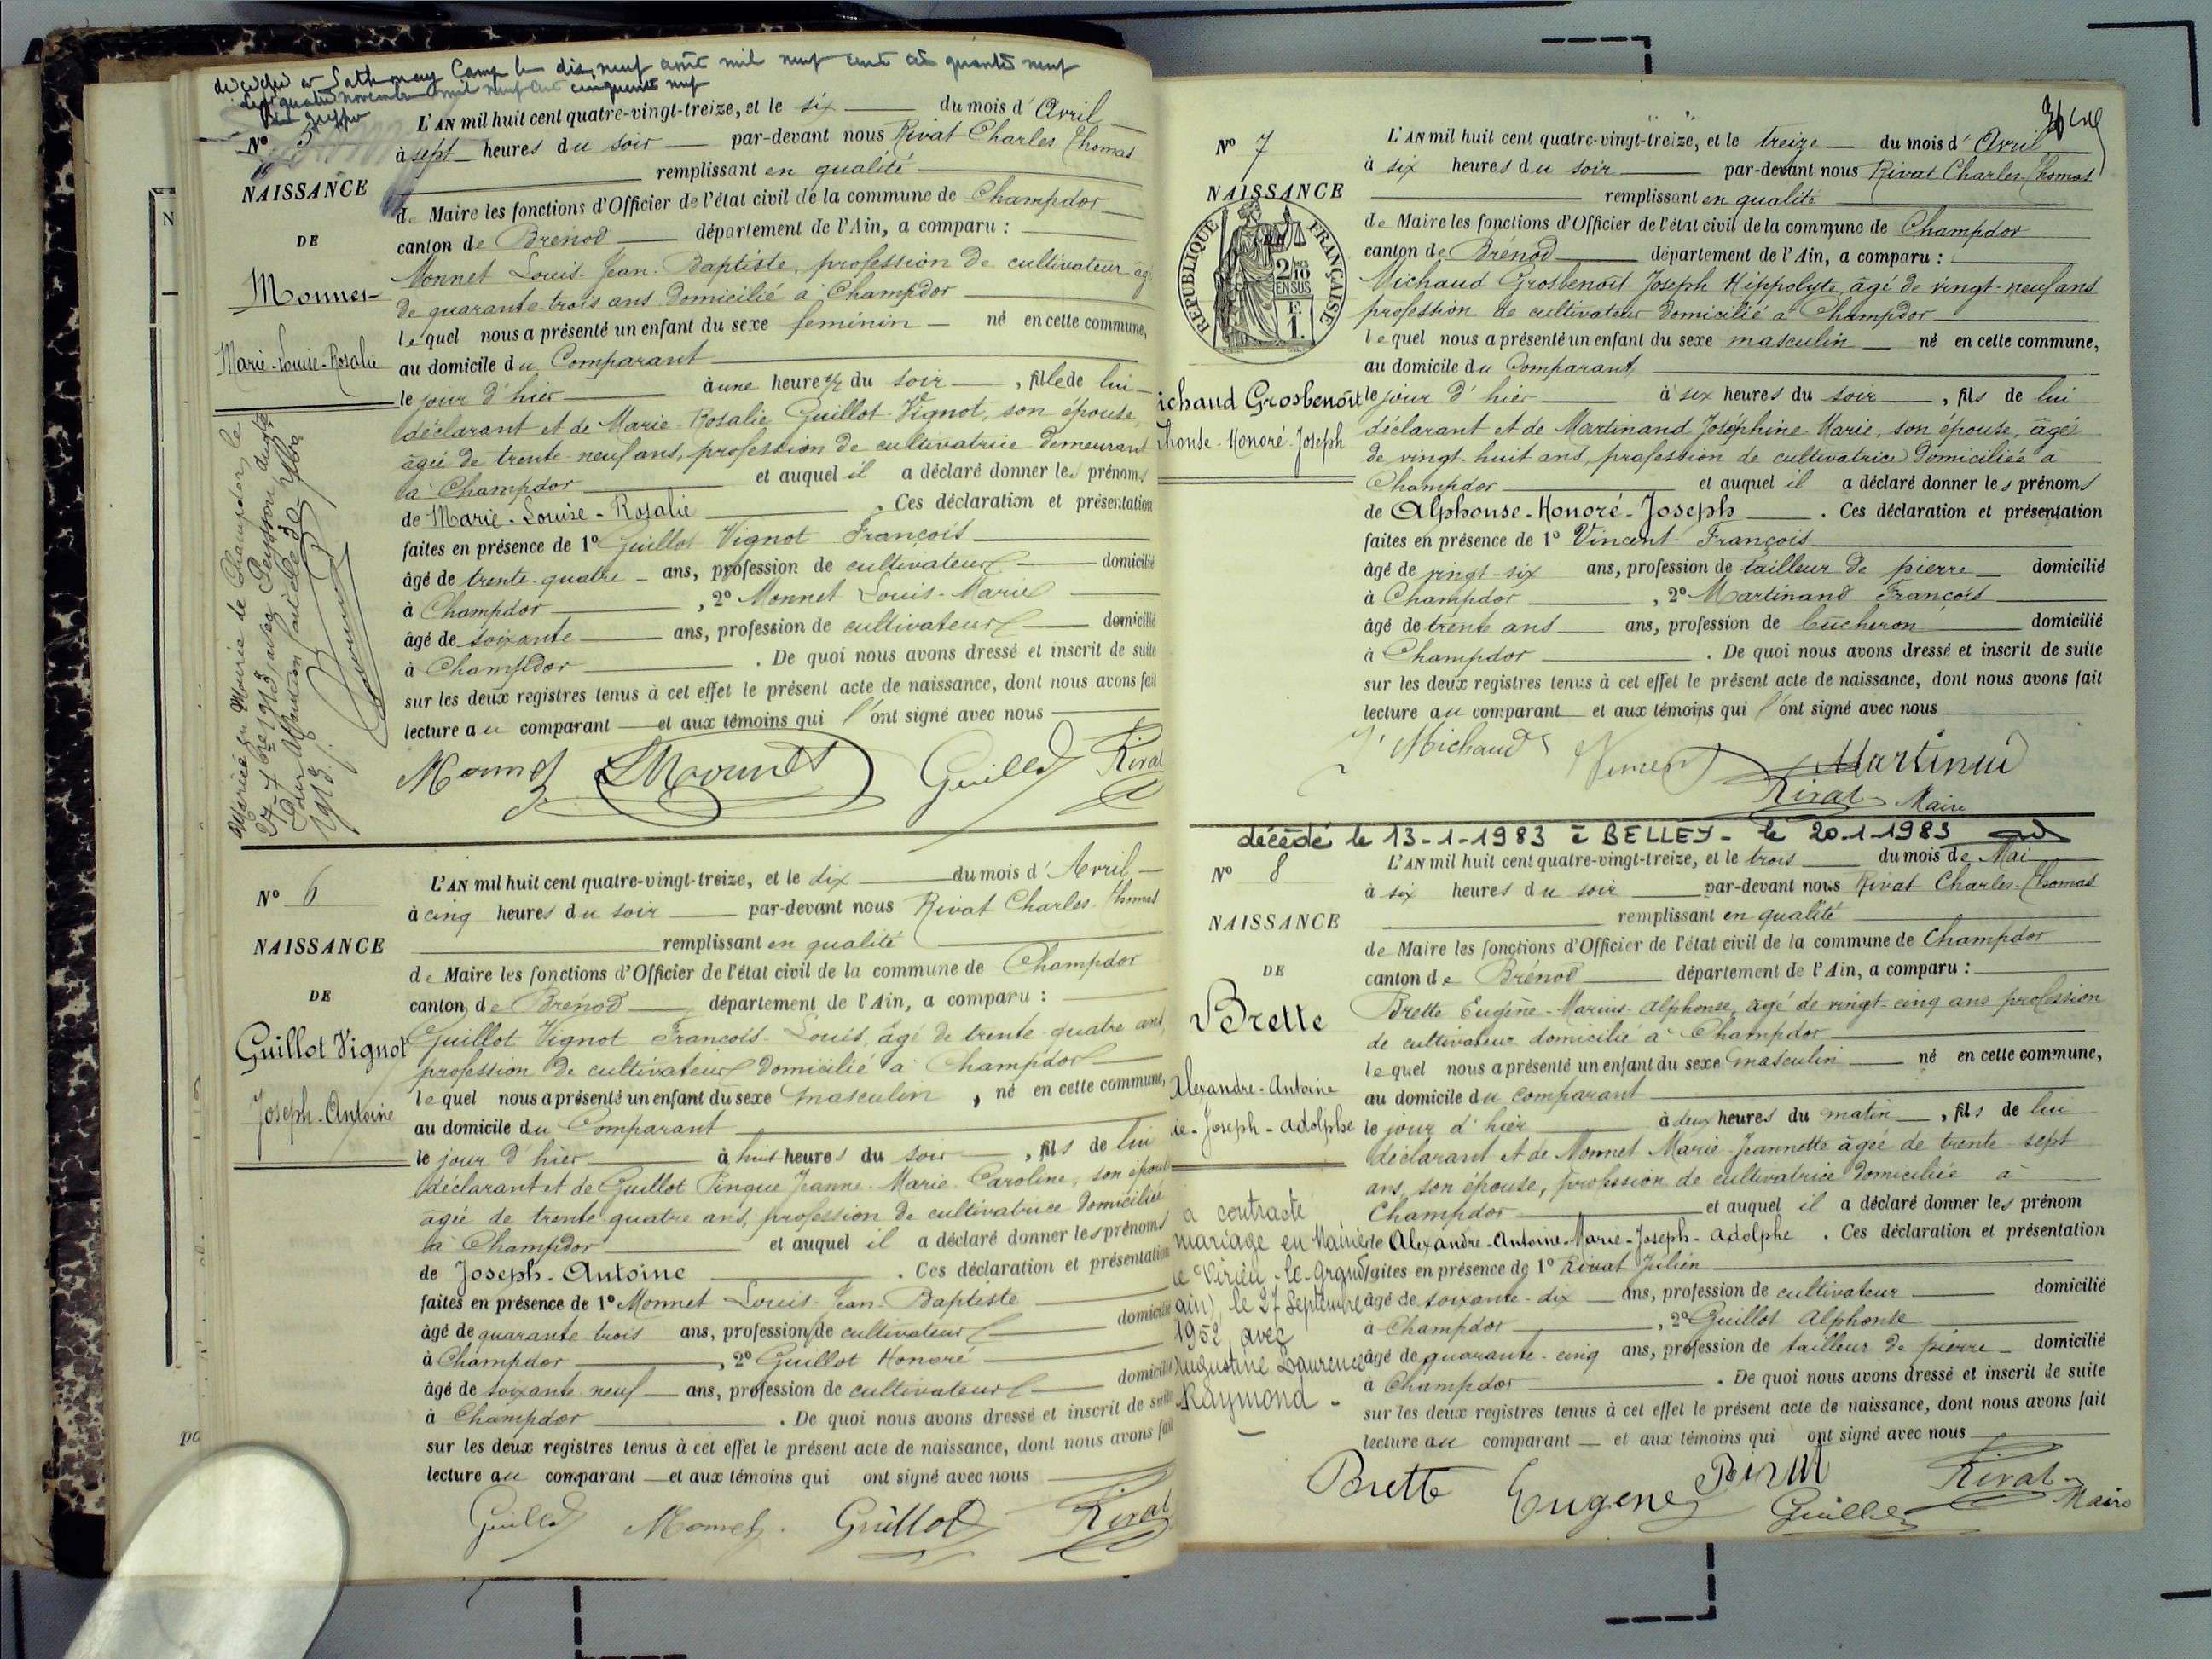 décédée à Camp le dix neuf août mil neuf cent cinquante neuf
quatre novembre mil neuf cent cinquante neuf
Nº 5
NAISSANCE
DE
Monnet
Marie-Louise-Rosalie
Mariée en Mairie de Champdor le
27 7bre 1913, avec
Mention faite le 30 7bre
1913.
L'AN mil huit cent quatre-vingt-treize, et le six du mois d'Avril
à sept heures du soir par-devant nous Rivat Charles Thomas
remplissant en qualité
de Maire les fonctions d'Officier de l'état civil de la commune de Champdor
canton de Brénod département de l'Ain, a comparu :
Monnet Louis-Jean-Baptiste, profession de cultivateur âgé
de quarante-trois ans domicilié à Champdor
lequel nous a présenté un enfant du sexe féminin né en cette commune,
au domicile du Comparant
le jour d'hier à une heure 1/2 du soir, fille de lui
déclarant et de Marie-Rosalie Guillot-Vignot, son épouse,
âgée de trente-neuf ans, profession de cultivatrice demeurant
à Champdor et auquel il a déclaré donner les prénoms
de Marie-Louise-Rosalie. Ces déclaration et présentation
faites en présence de 1º Guillot Vignot François
âgé de trente-quatre ans, profession de cultivateur domicilié
à Champdor, 2º Monnet Louis-Marie
âgé de soixante ans, profession de cultivateur domicilié
à Champdor. De quoi nous avons dressé et inscrit de suite
sur les deux registres tenus à cet effet le présent acte de naissance, dont nous avons fait
lecture au comparant et aux témoins qui l'ont signé avec nous
Monnet LMonnet Guillot Rivat
Nº 6
NAISSANCE
DE
Guillot Vignot
Joseph-Antoine
L'AN mil huit cent quatre-vingt-treize, et le dix du mois d'Avril
à cinq heures du soir par-devant nous Rivat Charles-Thomas
remplissant en qualité
de Maire les fonctions d'Officier de l'état civil de la commune de Champdor
canton de Brénod département de l'Ain, a comparu :
Guillot Vignot François-Louis, âgé de trente-quatre ans,
profession de cultivateur domicilié à Champdor
lequel nous a présenté un enfant du sexe masculin, né en cette commune,
au domicile du Comparant
le jour d'hier à huit heures du soir, fils de lui
déclarant et de Guillot Pingue Jeanne-Marie-Caroline, son épouse
âgée de trente-quatre ans, profession de cultivatrice domiciliée
à Champdor et auquel il a déclaré donner les prénoms
de Joseph-Antoine. Ces déclaration et présentation
faites en présence de 1º Monnet Louis-Jean-Baptiste
âgé de quarante trois ans, profession de cultivateur domicilié
à Champdor, 2º Guillot Honoré
âgé de soixante neuf ans, profession de cultivateur domicilié
à Champdor. De quoi nous avons dressé et inscrit de suite
sur les deux registres tenus à cet effet le présent acte de naissance, dont nous avons fait
lecture au comparant et aux témoins qui ont signé avec nous
Guillot Monnet Guillot Rivat
Nº 7
NAISSANCE
RÉPUBLIQUE FRANÇAISE
2/10 EN SUS
E. 1.
ichaud Grosbenoît
phonse-Honoré-Joseph
L'AN mil huit cent quatre-vingt-treize, et le treize du mois d'Avril
à six heures du soir par-devant nous Rivat Charles-Thomas
remplissant en qualité
de Maire les fonctions d'Officier de l'état civil de la commune de Champdor
canton de Brénod département de l'Ain, a comparu :
Michaud Grosbenoît Joseph Hippolyte, âgé de vingt-neuf ans
profession de cultivateur domicilié à Champdor
lequel nous a présenté un enfant du sexe masculin né en cette commune,
au domicile du Comparant
le jour d'hier à six heures du soir, fils de lui
déclarant et de Martinand Joséphine-Marie, son épouse, âgée
de vingt-huit ans, profession de cultivatrice domiciliée à
Champdor et auquel il a déclaré donner les prénoms
de Alphonse-Honoré-Joseph. Ces déclaration et présentation
faites en présence de 1º Vincent François
âgé de vingt-six ans, profession de tailleur de pierre domicilié
à Champdor, 2º Martinand François
âgé de trente ans ans, profession de bûcheron domicilié
à Champdor. De quoi nous avons dressé et inscrit de suite
sur les deux registres tenus à cet effet le présent acte de naissance, dont nous avons fait
lecture au comparant et aux témoins qui l'ont signé avec nous
J Michaud Vincent Martinand
Rivat Maire
décédé le 13-1-1983 à BELLEY - le 20-1-1983
Nº 8
NAISSANCE
DE
Brette
Alexandre-Antoine
ie-Joseph-Adolphe
a contracté
mariage en Mairie
de Virieu-le-Grand
(ain), le 27 Septembre
1952, avec
Augustine Laurence
Raymond -
L'AN mil huit cent quatre-vingt-treize, et le trois du mois de Mai
à six heures du soir par-devant nous Rivat Charles-Thomas
remplissant en qualité
de Maire les fonctions d'Officier de l'état civil de la commune de Champdor
canton de Brénod département de l'Ain, a comparu :
Brette Eugène-Marius-Alphonse, âgé de vingt-cinq ans profession
de cultivateur domicilié à Champdor
lequel nous a présenté un enfant du sexe masculin né en cette commune,
au domicile du comparant
le jour d'hier à deux heures du matin, fils de lui
déclarant et de Monnet Marie-Jeannette âgée de trente-sept
ans, son épouse, profession de cultivatrice domiciliée à
Champdor et auquel il a déclaré donner les prénom
de Alexandre-Antoine-Marie-Joseph-Adolphe. Ces déclaration et présentation
faites en présence de 1º Rivat Julien
âgé de soixante-dix ans, profession de cultivateur domicilié
à Champdor, 2º Guillot Alphonse
âgé de quarante-cinq ans, profession de tailleur de pierre domicilié
à Champdor. De quoi nous avons dressé et inscrit de suite
sur les deux registres tenus à cet effet le présent acte de naissance, dont nous avons fait
lecture au comparant et aux témoins qui ont signé avec nous
Brette Eugène Guillot Rivat
Maire